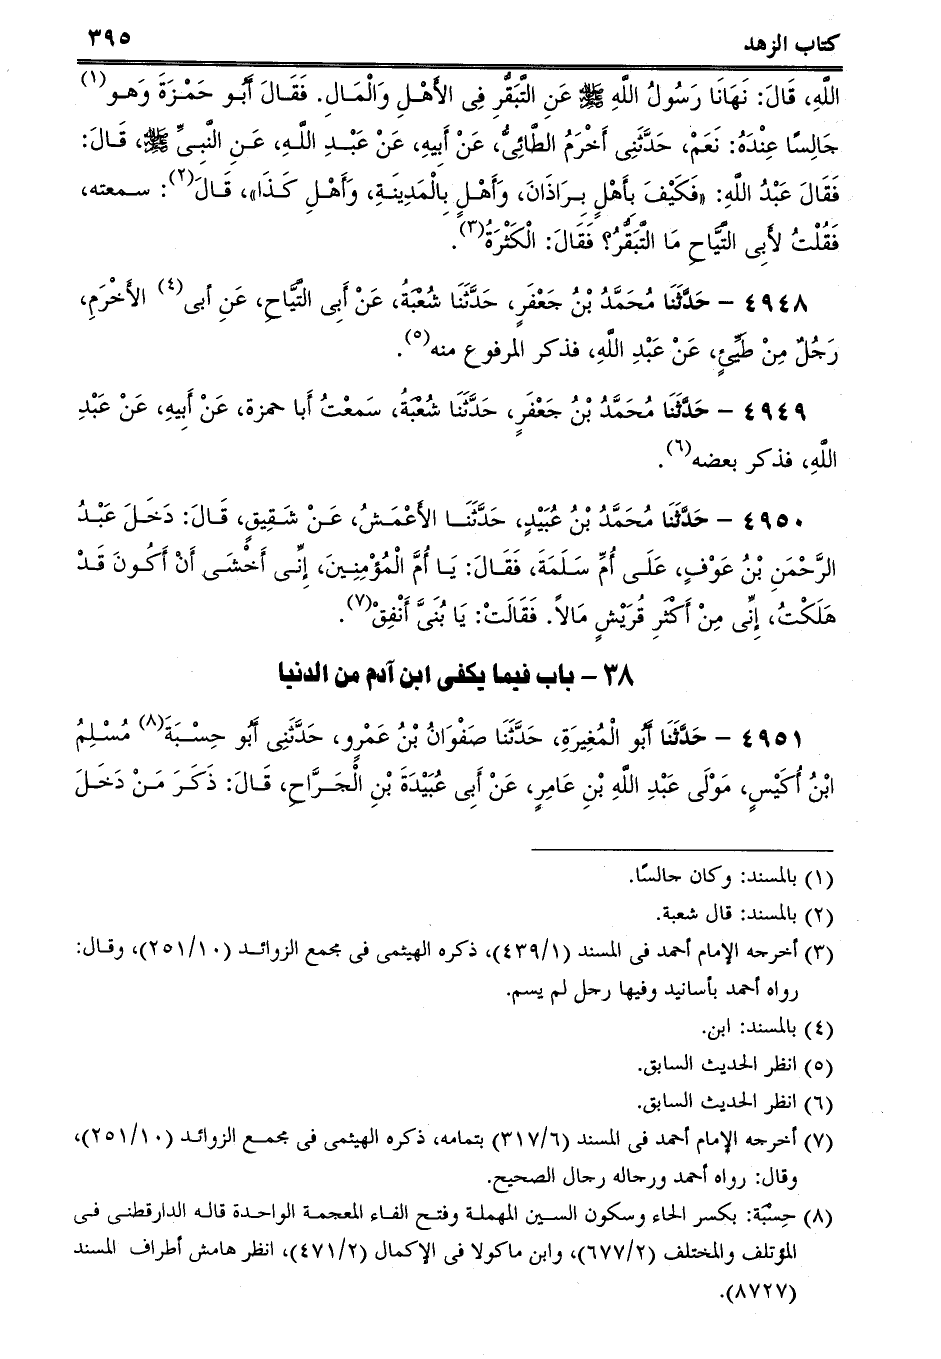 كتاب الزهد ٣٩٥
اللَّهِ، قَالَ: نَهَانَا رَسُولُ اللَّهِ ﷺ عَنِ التَّبَقُّرِ فِى الأَهْلِ وَالْمَالِ. فَقَالَ أَبُو حَمْزَةَ وَهو(١)
جَالِسًا عِنْدَهُ: نَعَمْ، حَدَّثَنِى أَخْرَمُ الطَّائِىُّ، عَنْ أَبِيهِ، عَنْ عَبْدِ اللَّهِ، عَنِ النَّبِىِّ ﷺ، قَالَ:
فَقَالَ عَبْدُ اللَّهِ: «فَكَيْفَ بِأَهْلٍ بِرَاذَانَ، وَأَهْلٍ بِالْمَدِينَةِ، وَأَهْلِ كَذَا»، قَالَ(٢): سمعته،
فَقُلْتُ لأَبِى التَّيَّاحِ مَا التَّبَقُّرُ؟ فَقَالَ: الْكَثْرَةُ(٣).
٤٩٤٨ - حَدَّثَنَا مُحَمَّدُ بْنُ جَعْفَرٍ، حَدَّثَنَا شُعْبَةُ، عَنْ أَبِى التَّيَّاحِ، عَنِ أبى(٤) الأَخْرَمِ،
رَجُلٌ مِنْ طَيِّئٍ، عَنْ عَبْدِ اللَّهِ، فذكر المرفوع منه(٥).
٤٩٤٩ - حَدَّثَنَا مُحَمَّدُ بْنُ جَعْفَرٍ، حَدَّثَنَا شُعْبَةُ، سَمَعْتُ أَبا حمزة، عَنْ أَبِيهِ، عَنْ عَبْدِ
اللَّهِ، فذكر بعضه(٦).
٤٩٥٠ - حَدَّثَنَا مُحَمَّدُ بْنُ عُبَيْدٍ، حَدَّثَنَا الأَعْمَشُ، عَنْ شَقِيقٍ، قَالَ: دَخَلَ عَبْدُ
الرَّحْمَنِ بْنُ عَوْفٍ، عَلَى أُمِّ سَلَمَةَ، فَقَالَ: يَا أُمَّ الْمُؤْمِنِينَ، إِنِّى أَخْشَى أَنْ أَكُونَ قَدْ
هَلَكْتُ، إِنِّى مِنْ أَكْثَرِ قُرَيْشٍ مَالاً. فَقَالَتْ: يَا بُنَىَّ أَنْفِقْ(٧).
٣٨ - باب فيما يكفى ابن آدم من الدنيا
٤٩٥١ - حَدَّثَنَا أَبُو الْمُغِيرَةِ، حَدَّثَنَا صَفْوَانُ بْنُ عَمْرٍو، حَدَّثَنِى أَبُو حِسْبَةَ(٨) مُسْلِمُ
ابْنُ أُكَيْسٍ، مَوْلَى عَبْدِ اللَّهِ بْنِ عَامِرٍ، عَنْ أَبِى عُبَيْدَةَ بْنِ الْجَرَّاحِ، قَالَ: ذَكَرَ مَنْ دَخَلَ
(١) بالمسند: وكان جالسًا.
(٢) بالمسند: قال شعبة.
(٣) أخرجه الإمام أحمد فى المسند (٤٣٩/١)، ذكره الهيثمى فى مجمع الزوائد (٢٥١/١٠)، وقال:
رواه أحمد بأسانيد وفيها رجل لم يسم.
(٤) بالمسند: ابن.
(٥) انظر الحديث السابق.
(٦) انظر الحديث السابق.
(٧) أخرجه الإمام أحمد فى المسند (٣١٧/٦) بتمامه، ذكره الهيثمى فى مجمع الزوائد (٢٥١/١٠)،
وقال: رواه أحمد ورجاله رجال الصحيح.
(٨) حِسْبَة: بكسر الحاء وسكون السين المهملة وفتح الفاء المعجمة الواحدة قاله الدارقطنى فى
المؤتلف والمختلف (٦٧٧/٢)، وابن ماكولا فى الإكمال (٤٧١/٢)، انظر هامش أطراف المسند
(٨٧٢٧).